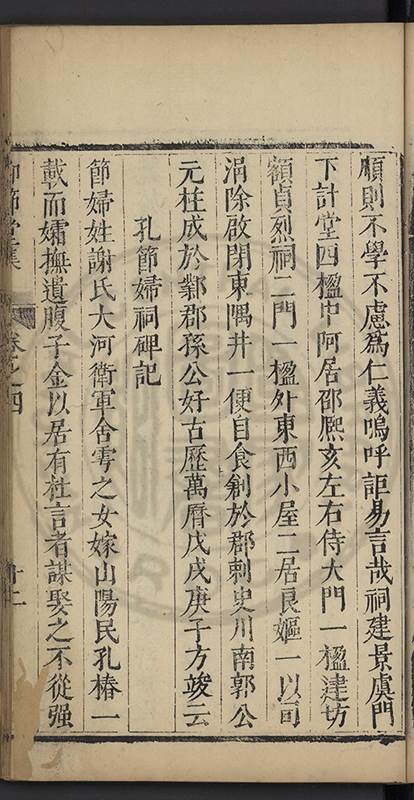 順則不學不慮為仁義嗚呼詎易言哉祠建景虞門
下計堂四楹中阿居邵熙亥左右侍大門一楹建坊
額貞烈祠二門一楹外東西小屋二居良嫗一以司
涓除啟閉東隅井一便自食創於郡刺史川南郭公
元柱成於鄴郡孫公好古歷萬曆戊戌庚子方竣云
孔節婦祠碑記
節婦姓謝氏大河衛軍舍雩之女嫁山陽民孔椿一
載而孀撫遺腹子金以居有杜言者謀娶之不從强
卷之四
十二